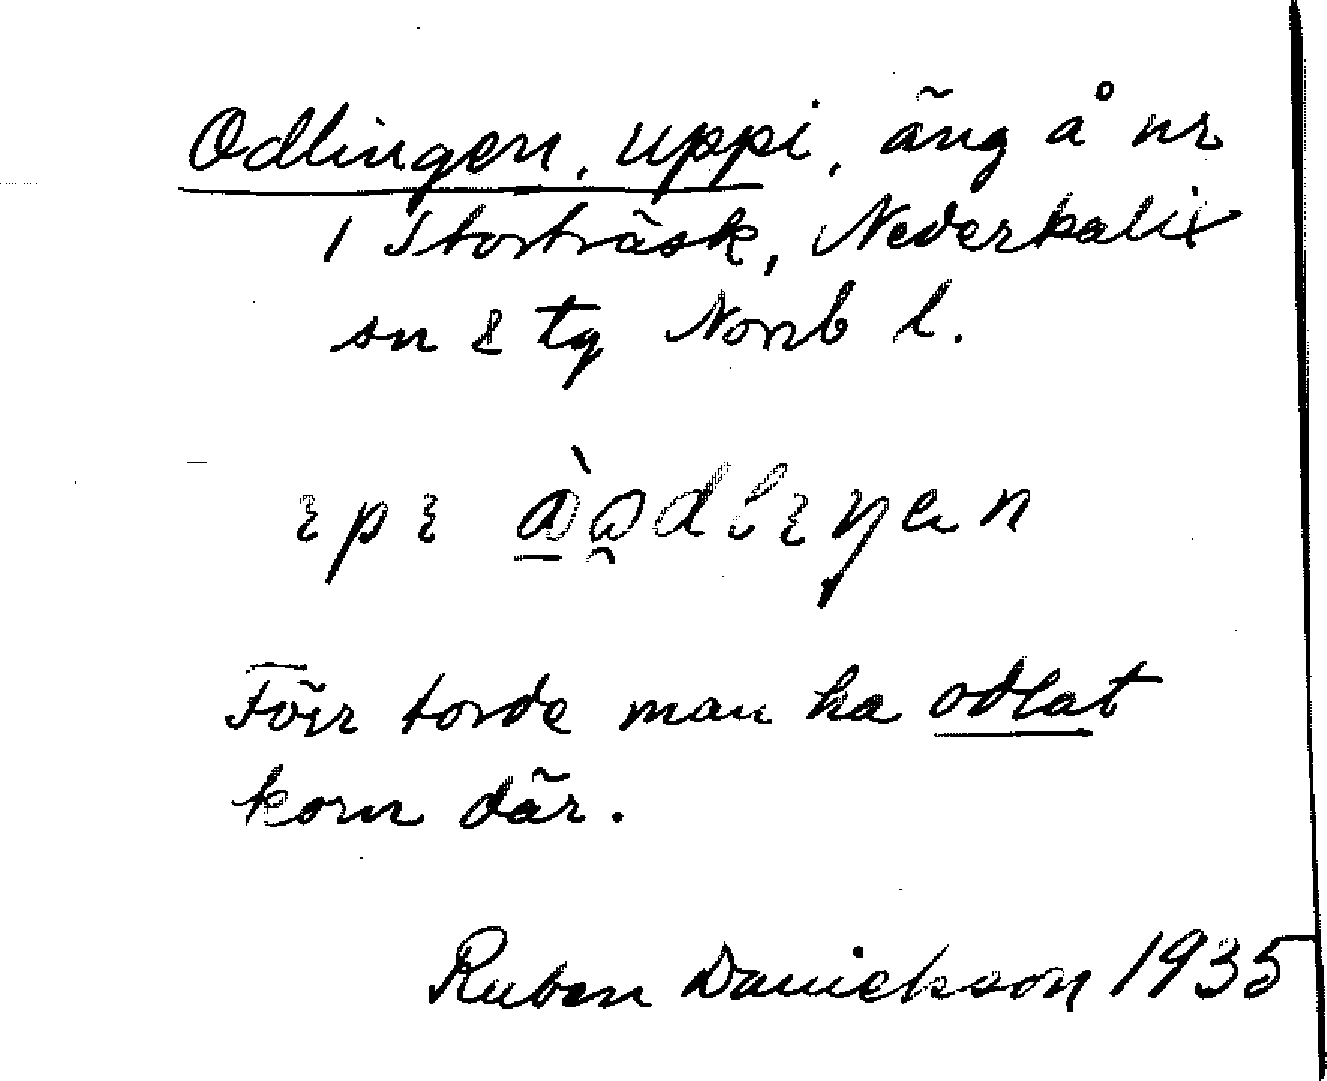 Odlingen, uppi, äng å nr
1 Storträsk, Nederkalix
sn & tg Norrb l.
Förr torde man ha odlat
korn där.
Ruben Danielsson 1935